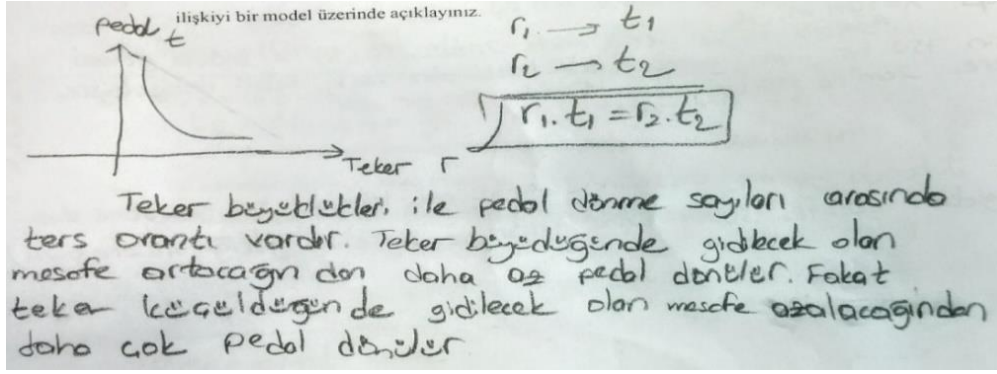 ilişkiyi bir model üzerinde açıklayınız.
pedal t
r₁ → t₁
r₂ → t₂
r₁.t₁ = r₂.t₂
Teker r
Teker büyüklükleri ile pedal dönme sayıları arasında
ters orantı vardır. Teker büyüdüğünde gidilecek olan
mesafe artacağından daha az pedal dönüler. Fakat
teker küçüldüğünde gidilecek olan mesafe azalacağından
daha çok pedal dönülür